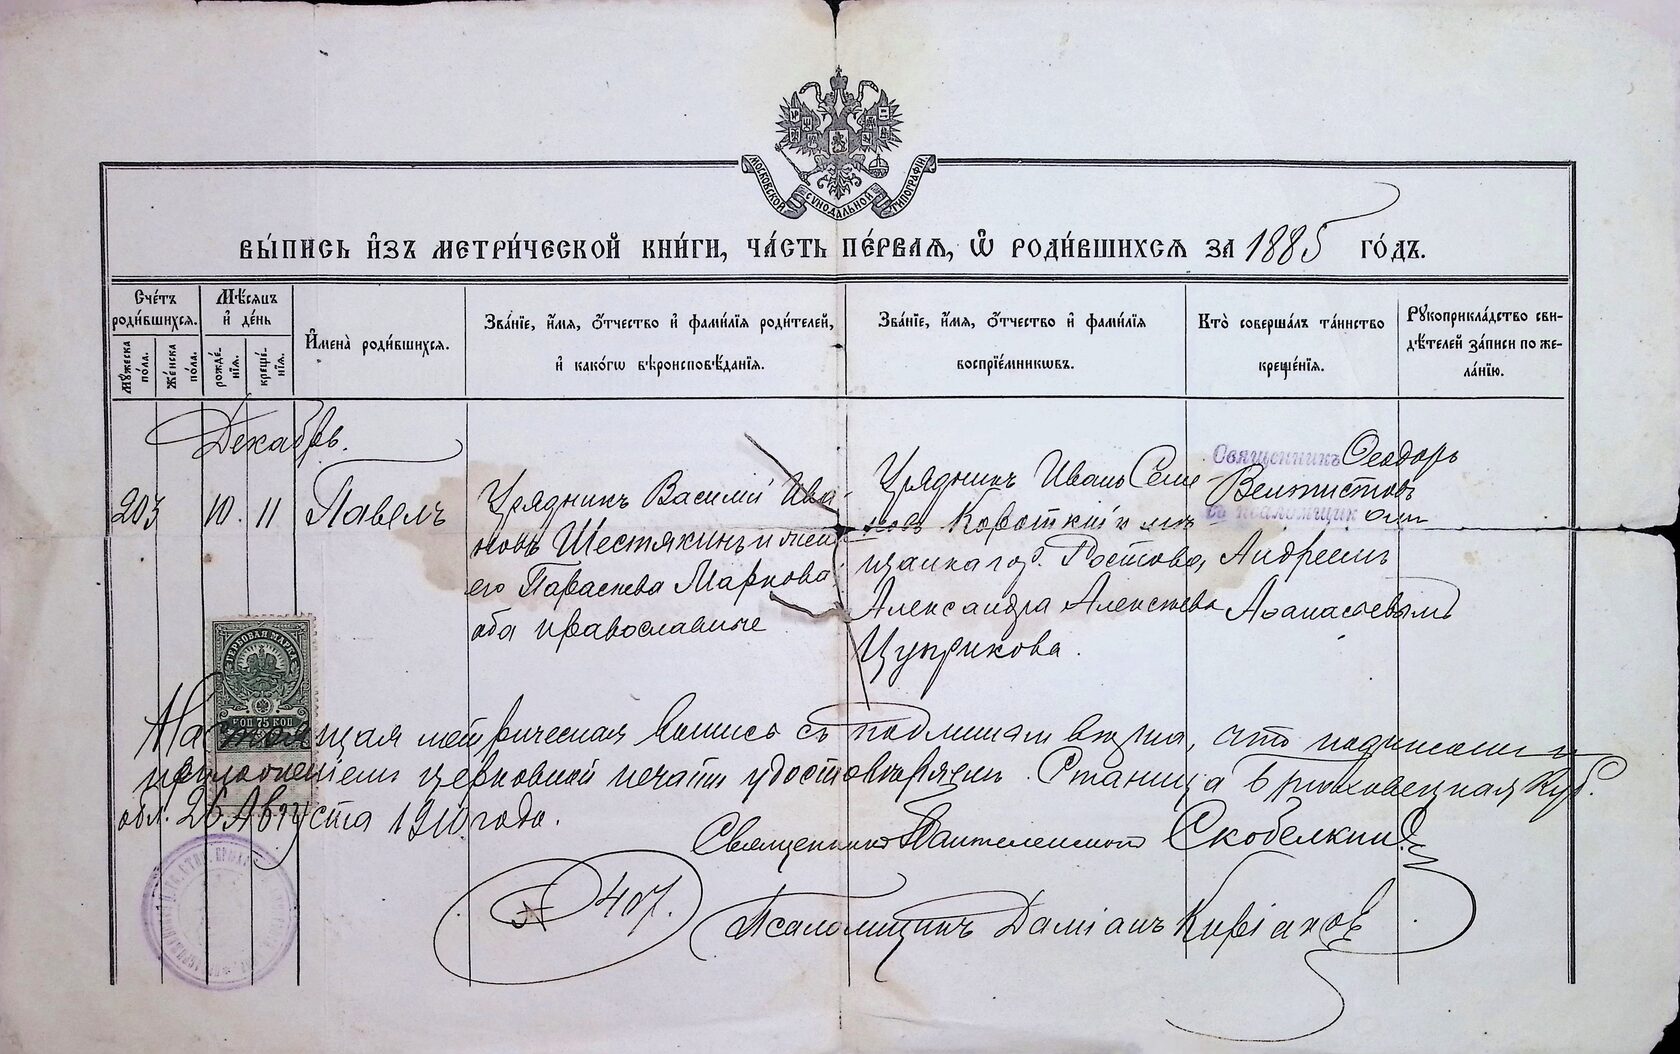 МОСКОВСКОЙ СѴНОДАЛЬНОЙ ТИПОГРАФІИ
ВЫ́ПИСЬ И҆ЗЪ МЕТРИ́ЧЕСКОЙ КНИ́ГИ, ЧА́СТЬ ПЕ́РВАѦ, Ѡ҆ РОДИ́ВШИХСѦ ЗА 1885 ГО́ДЪ.
Сче́тъ роди́вшихсѧ.
Мꙋ́жеска по́ла.
Же́нска по́ла.
Мѣ́сѧцъ и҆ де́нь
рожде́нїѧ.
креще́нїѧ.
И҆мена̀ роди́вшихсѧ.
Зва́нїе, и҆́мѧ, ѻ҆́тчество и҆ фами́лїѧ роди́телей,
и҆ како́гѡ вѣроисповѣ́данїѧ.
Зва́нїе, и҆́мѧ, ѻ҆́тчество и҆ фами́лїѧ
воспрїе́мникѡвъ.
Кто̀ соверша́лъ та́инство
креще́нїѧ.
Рꙋкоприкла́дство сви-
дѣ́телей за́писи по же-
ла́нїю.
Декабрь.
203
10. 11
Павелъ
Урядникъ Василій Ива-
новъ Шестякинъ и жена
его Параскева Маркова:
оба православные
Урядникъ Иванъ Семе-
новъ Короткій и мѣ-
щанка гор. Ростова,
Александра Алексѣева
Цуприкова.
Священникъ Ѳеодоръ
Велтистовъ
съ псаломщикомъ
Андреемъ
Аѳанасьевымъ
ГЕРБОВАЯ МАРКА
КОП 75 КОП
Настоящая метрическая выпись съ подлинымъ вѣрна, что подписомъ и
приложеніемъ церковной печати удостовѣряемъ. Станица Брюховецкая Куб.
обл. 26 Августа 1910 года.
Священникъ Пантелеимонъ Скобелкинъ
№ 407.
Псаломщикъ Даміанъ Киріаковъ